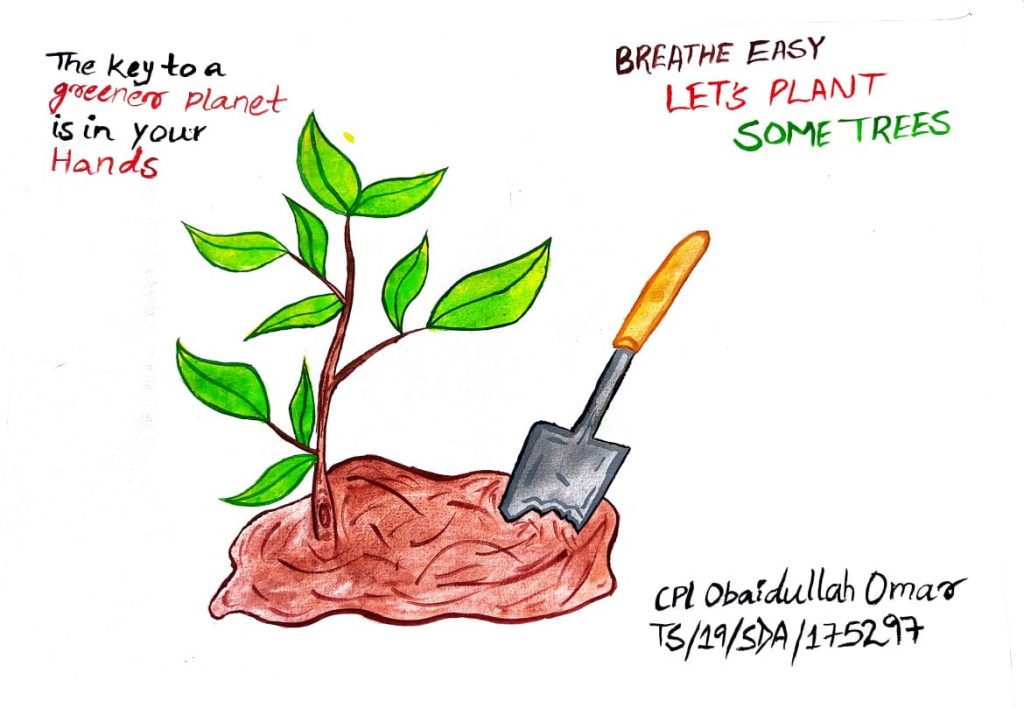 The key to a
greener planet
is in your
Hands
BREATHE EASY
LET'S PLANT
SOME TREES
CPl Obaidullah Omar
TS/19/SDA/175297